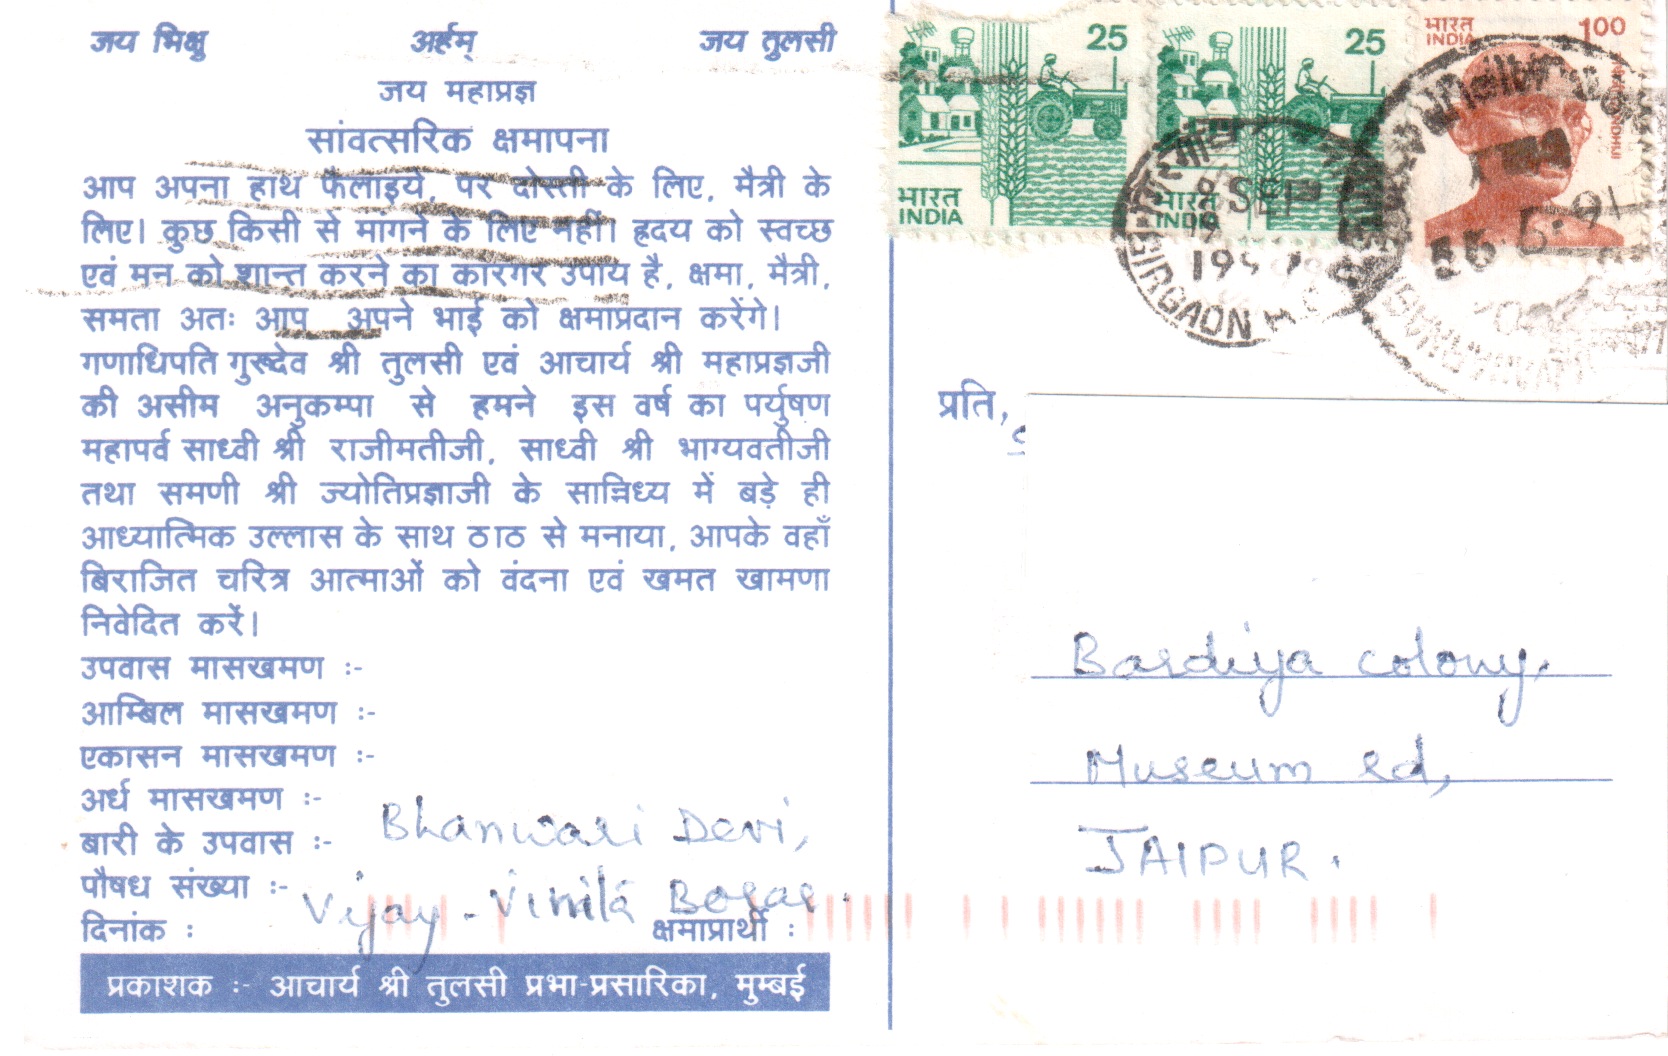 जय भिक्षु अर्हम् जय तुलसी
जय महाप्रज्ञ
सांवत्सरिक क्षमापना
आप अपना हाथ फैलाइये, पर दोस्ती के लिए, मैत्री के
लिए। कुछ किसी से मांगने के लिए नहीं। ह्रदय को स्वच्छ
एवं मन को शान्त करने का कारगर उपाय है, क्षमा, मैत्री,
समता अतः आप अपने भाई को क्षमाप्रदान करेंगे।
गणाधिपति गुरुदेव श्री तुलसी एवं आचार्य श्री महाप्रज्ञजी
की असीम अनुकम्पा से हमने इस वर्ष का पर्युषण
महापर्व साध्वी श्री राजीमतीजी, साध्वी श्री भाग्यवतीजी
तथा समणी श्री ज्योतिप्रज्ञाजी के सान्निध्य में बड़े ही
आध्यात्मिक उल्लास के साथ ठाठ से मनाया, आपके वहाँ
बिराजित चरित्र आत्माओं को वंदना एवं खमत खामणा
निवेदित करें।
उपवास मासखमण :-
आम्बिल मासखमण :-
एकासन मासखमण :-
अर्ध मासखमण :-
बारी के उपवास :- Bhanwari Devi,
पौषध संख्या :- Vijay - Vimla Borar.
दिनांक : क्षमाप्रार्थी :
प्रकाशक :- आचार्य श्री तुलसी प्रभा-प्रसारिका, मुम्बई
25
भारत
INDIA
25
भारत
INDIA
भारत 100
INDIA
SEP
GIRGAON
प्रति,
Bardiya colony,
Museum rd,
JAIPUR.